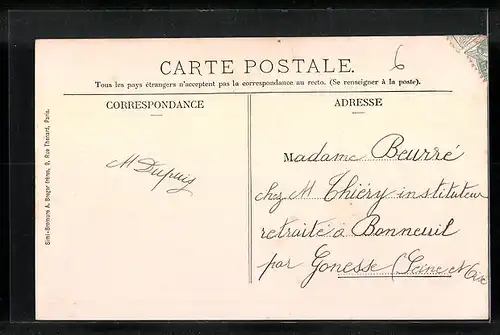 6
CARTE POSTALE.
Tous les pays étrangers n'acceptent pas la correspondance au recto. (Se renseigner à la poste).
CORRESPONDANCE
ADRESSE
M Dupuis
Madame Beurré
chez M Thiéry instituteur
retraité à Bonneuil
par Gonesse (Seine et Oise
Simi-Bromure A. Breger frères, 9, Rue Thénard, Paris.